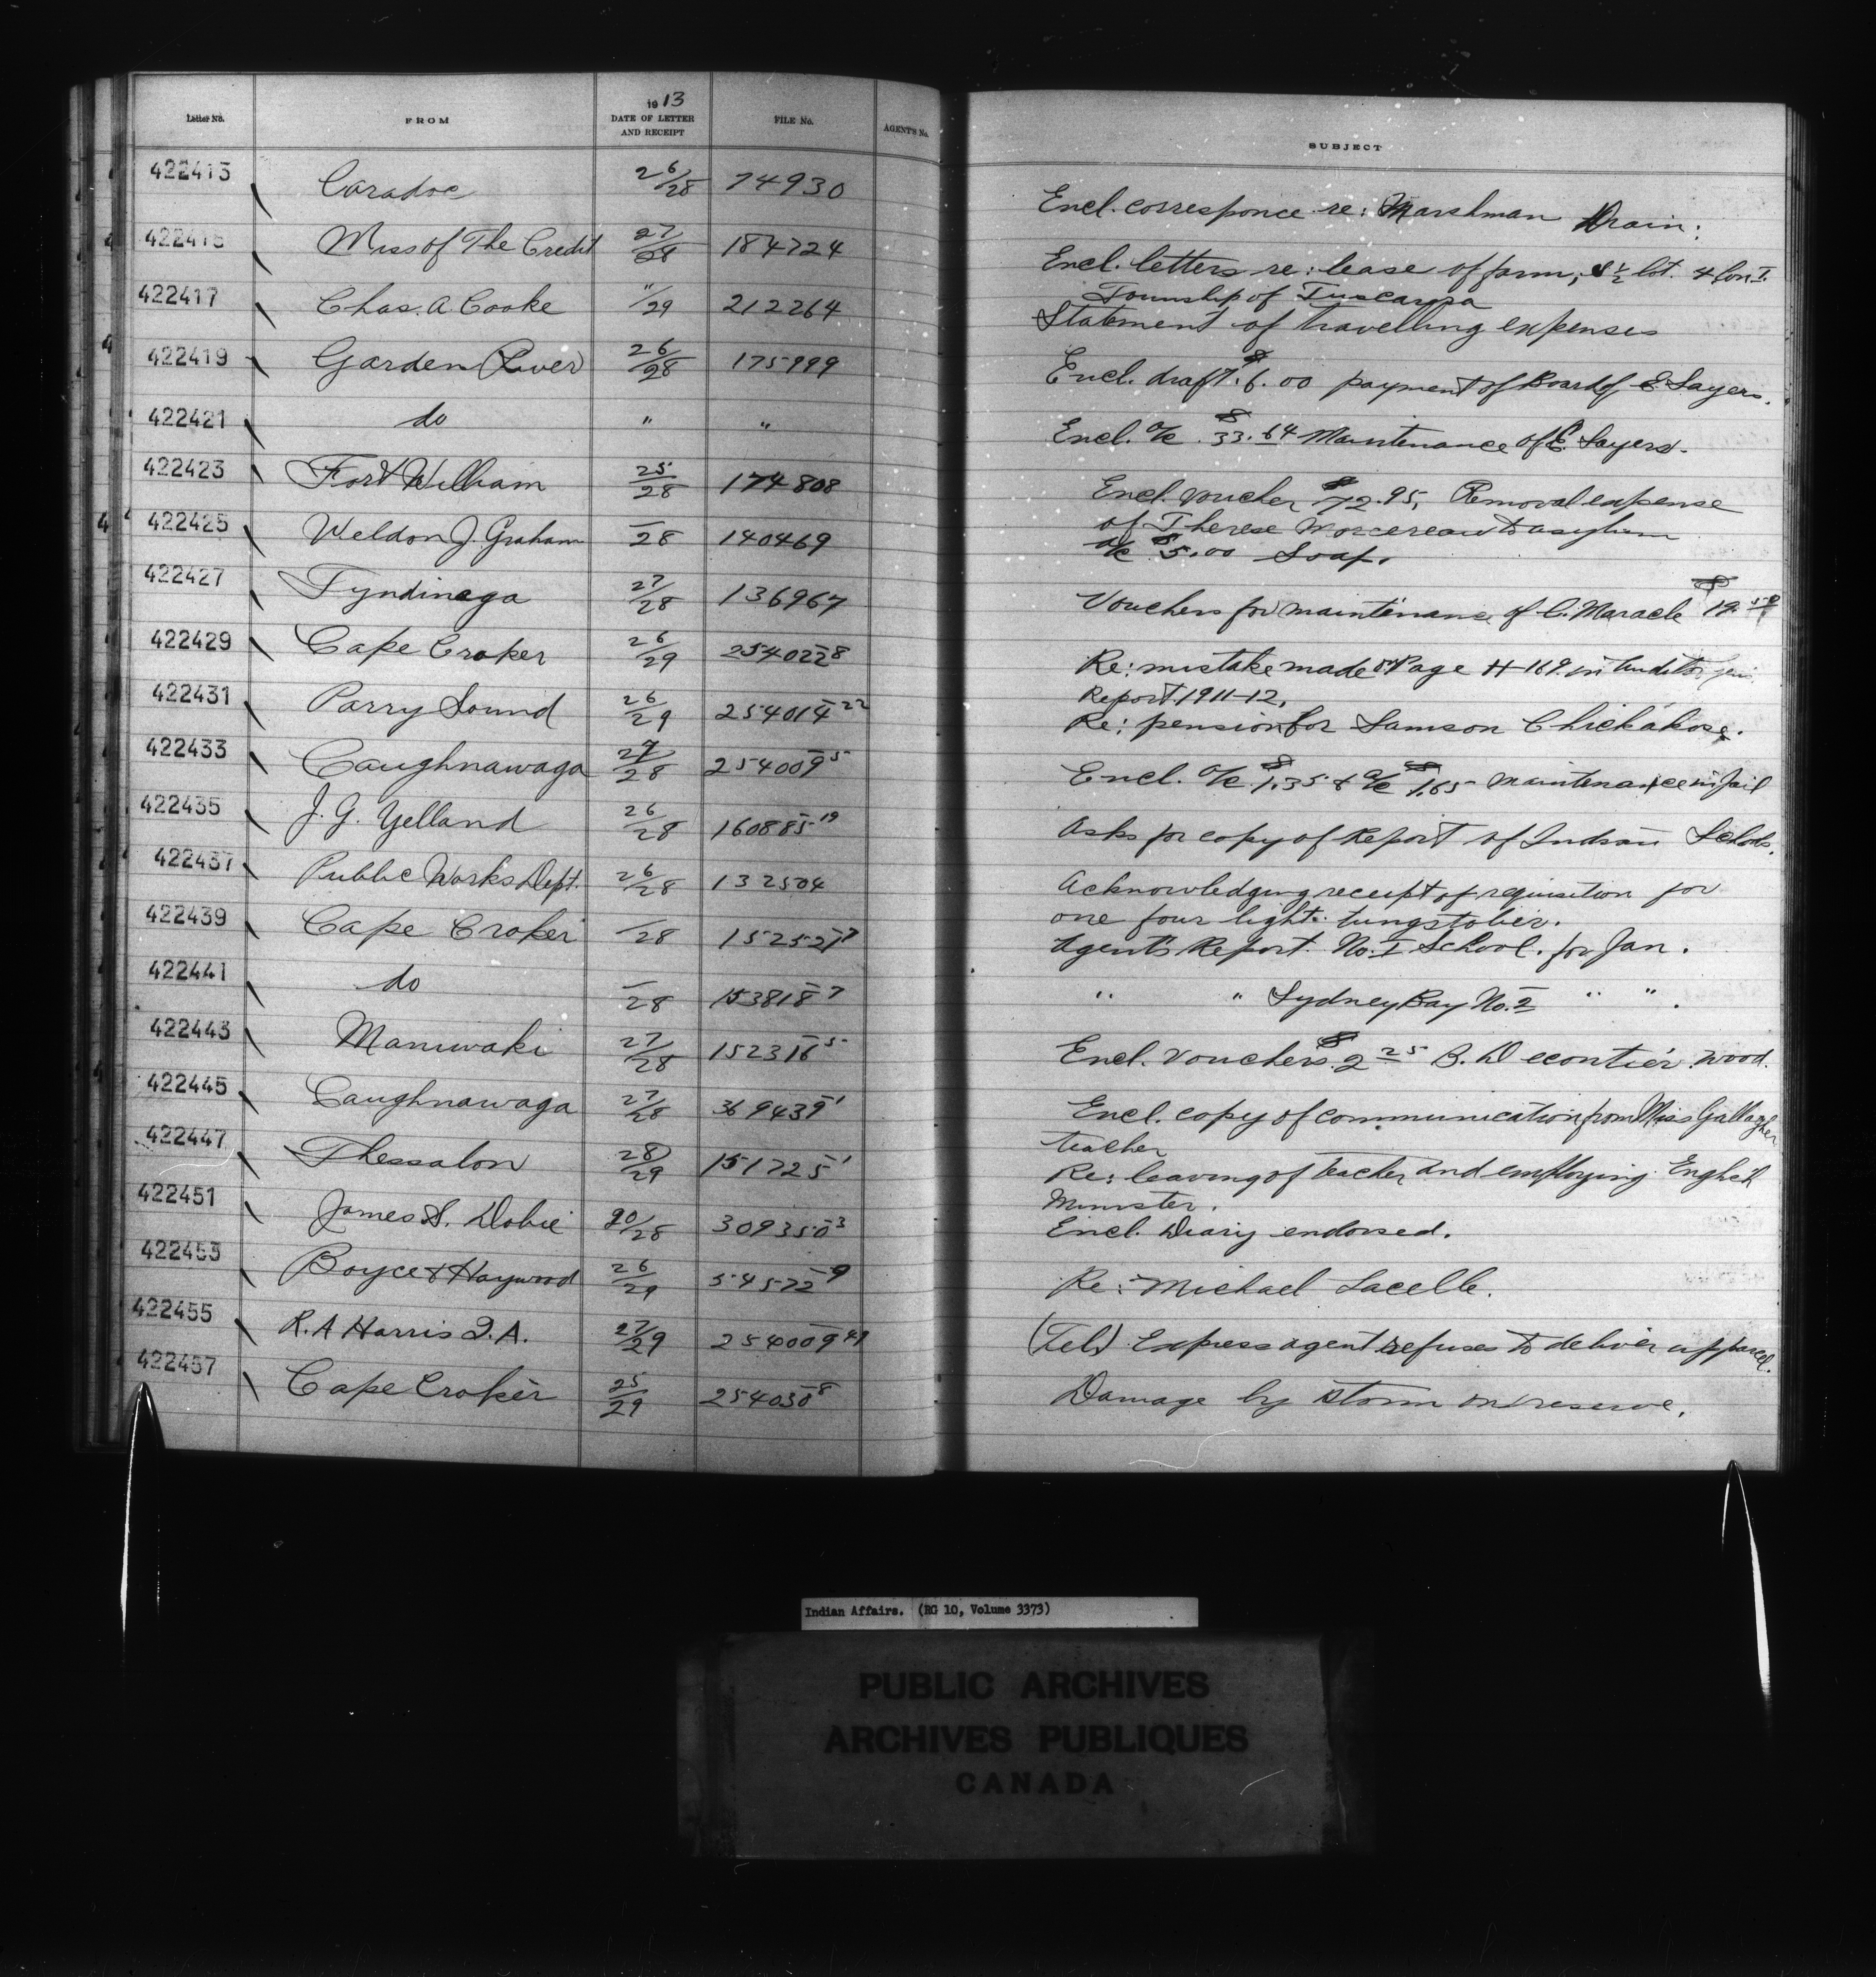 Letter No. FROM 1913 DATE OF LETTER AND RECEIPT FILE No. AGENT'S No. SUBJECT
422413 Caradoc 26/28 74930 Encl. corresponce re: Marshman Drain:
422415 Miss of The Credit 27/28 184724 Encl. letters re: lease of farm, S½ lot 4 Con I.
Township of Tuscarora
422417 Chas. A. Cooke "/29 212264 Statement of travelling expenses
422419 Garden River 26/28 175999 Encl. draft $6.00 payment of Board of E. Sayers.
422421 do " " Encl. a/c $33.64 Maintenance of E. Sayers.
422423 Fort William 25/28 174808 Encl. voucher $72.95, Removal expense
of Therese to asylum
422425 Weldon J. Graham —/28 140469 a/c $5.00 Soap.
422427 Tyndinaga 27/28 136967 Vouchers for maintenance of C. Maracle $19.50
422429 Cape Croker 26/29 254022-8 Re: mistake made on Page H-169 in Auditor Gen
Report 1911-12.
422431 Parry Sound 26/29 254014-22 Re: pension for Samson Chickakose.
422433 Caughnawaga 27/28 254009-5 Encl. a/c $1.35 & a/c $1.65 maintenance in Jail
422435 J. G. Yelland 26/28 160885-19 Asks for copy of Report of Indian Schols.
422437 Public Works Dept. 26/28 132504 Acknowledging receipt of requisition for
one four light tungstolier.
422439 Cape Croker —/28 152527-7 Agent's Report No. I School. for Jan.
422441 do —/28 153818-7 " " Sydney Bay No. 2 " ".
422443 Maniwaki 27/28 152316-5 Encl. vouchers $2 25 B. Decontier wood.
422445 Caughnawaga 27/28 369439-1 Encl. copy of communication from Miss Gallagher
teacher
422447 Thessalon 28/29 151725-1 Re: leaving of teacher and employing English
Minister.
422451 James S. Dobie 20/28 309350-3 Encl. Diary endorsed.
422453 Boyce & Haywood 26/29 54572-9 Re: Michael Lacelle.
422455 R. A Harris I. A. 27/29 254009-41 (Tel) Express agent refuses to deliver up parcel.
422457 Cape Croker 25/29 254030-8 Damage by storm on reserve.
Indian Affairs. (RG 10, Volume 3373)
PUBLIC ARCHIVES
ARCHIVES PUBLIQUES
CANADA